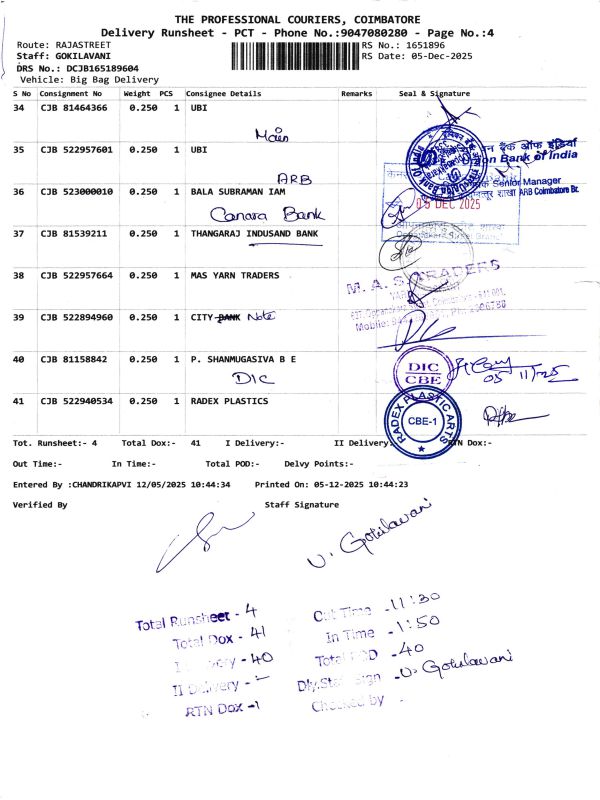 THE PROFESSIONAL COURIERS, COIMBATORE
Delivery Runsheet - PCT - Phone No.:9047080280 - Page No.:4
Route: RAJASTREET RS No.: 1651896
Staff: GOKILAVANI RS Date: 05-Dec-2025
DRS No.: DCJB165189604
Vehicle: Big Bag Delivery
S No Consignment No Weight PCS Consignee Details Remarks Seal & Signature
34 CJB 81464366 0.250 1 UBI
Main
35 CJB 522957601 0.250 1 UBI
यूनियन बैंक ऑफ इंडिया
Union Bank of India
ARB
Senior Manager
शाखा ARB Coimbatore Br.
36 CJB 523000010 0.250 1 BALA SUBRAMAN IAM
05 DEC 2025
Canara Bank
37 CJB 81539211 0.250 1 THANGARAJ INDUSAND BANK
38 CJB 522957664 0.250 1 MAS YARN TRADERS
M. A. S. TRADERS
39 CJB 522894960 0.250 1 CITY BANK Note
40 CJB 81158842 0.250 1 P. SHANMUGASIVA B E
DIC
DIC
CBE
05/11/25
41 CJB 522940534 0.250 1 RADEX PLASTICS
RADEX PLASTIC ARTS
CBE-1
Tot. Runsheet:- 4 Total Dox:- 41 I Delivery:- II Delivery: RTN Dox:-
Out Time:- In Time:- Total POD:- Delvy Points:-
Entered By :CHANDRIKAPVI 12/05/2025 10:44:34 Printed On: 05-12-2025 10:44:23
Verified By Staff Signature
V. Gokilavani
Total Runsheet - 4 Out Time - 11:30
Total Dox - 41 In Time - 11:50
I Delivery - 40 Total POD - 40
II Delivery - Dly.Staff Sign - V. Gokilavani
RTN Dox - 1 Checked by -